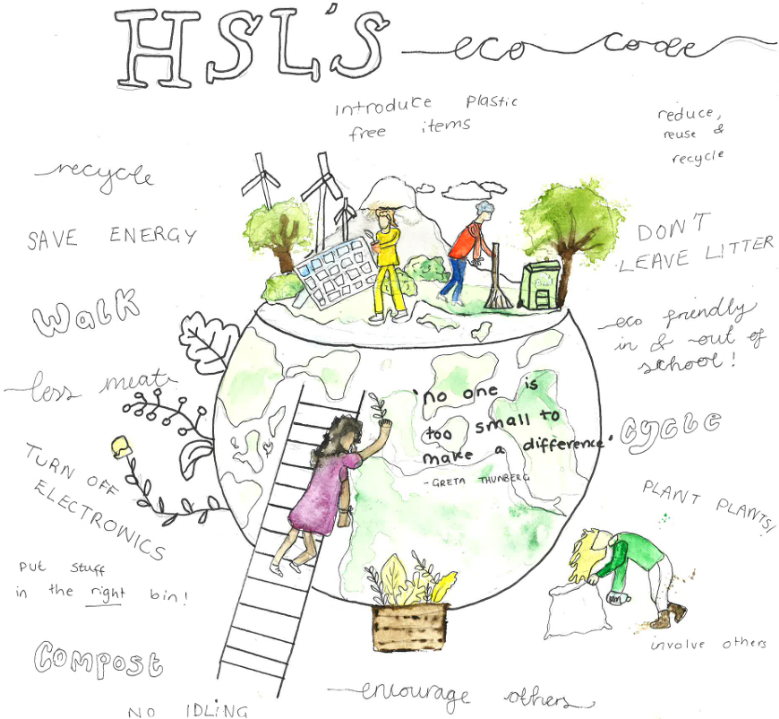 HSL'S eco code
introduce plastic
free items
reduce,
reuse &
recycle
recycle
SAVE ENERGY
WALK
less meat
TURN OFF
ELECTRONICS
put stuff
in the right bin!
COMPOST
NO IDLING
'no one is
too small to
make a difference'
- GRETA THUNBERG
DON'T
LEAVE LITTER
eco friendly
in & out of
school!
cycle
PLANT PLANTS!
involve others
encourage others